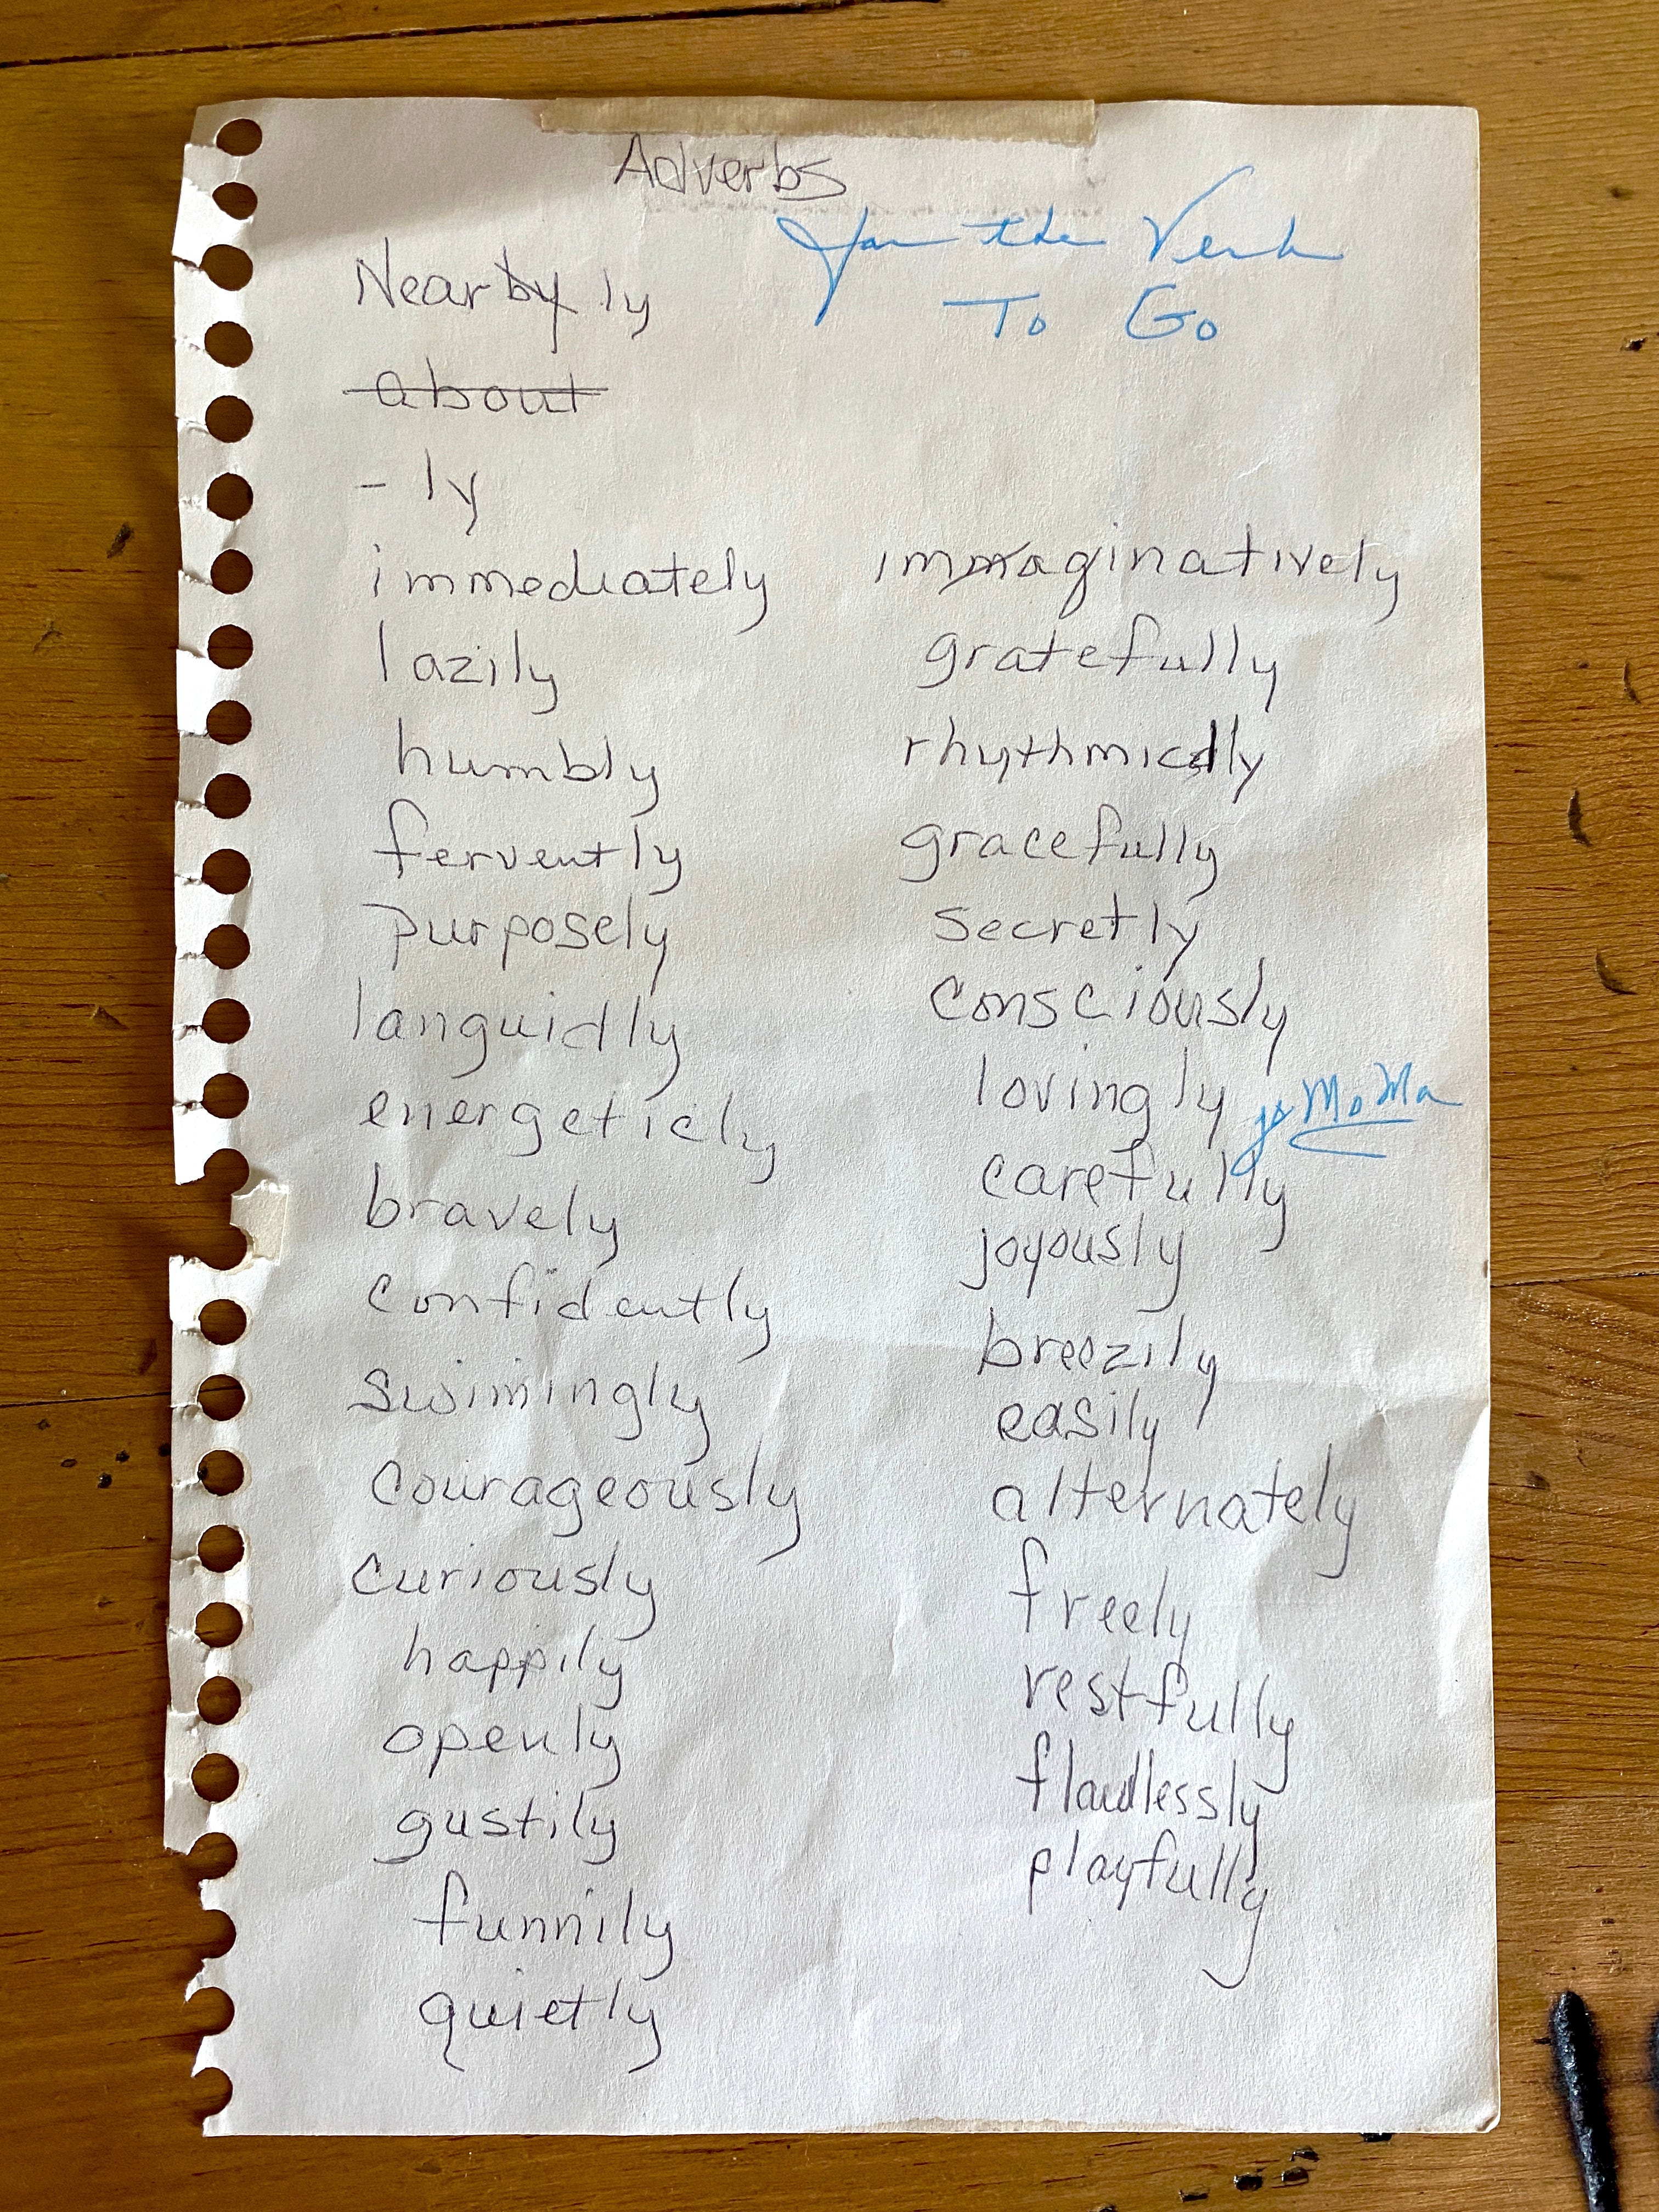 Adverbs
for the Verb
To Go
Nearby ly
about
- ly
immediately
lazily
humbly
fervently
purposely
languidly
energeticly
bravely
confidently
swimingly
courageously
curiously
happily
openly
gustily
funnily
quietly
immaginatively
gratefully
rhythmically
gracefully
secretly
consciously
lovingly MoMa
carefully
joyously
breezily
easily
alternately
freely
restfully
flawlessly
playfully